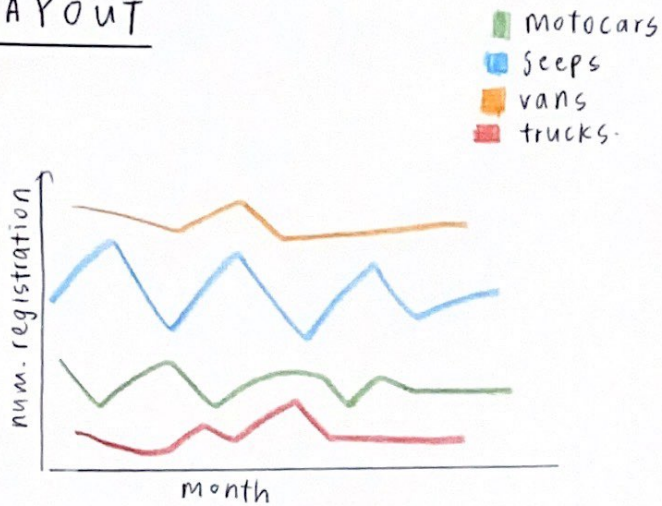 AYOUT
motocars
jeeps
vans
trucks.
num. registration
month